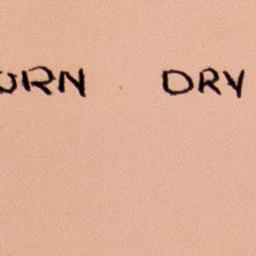 URN DRY